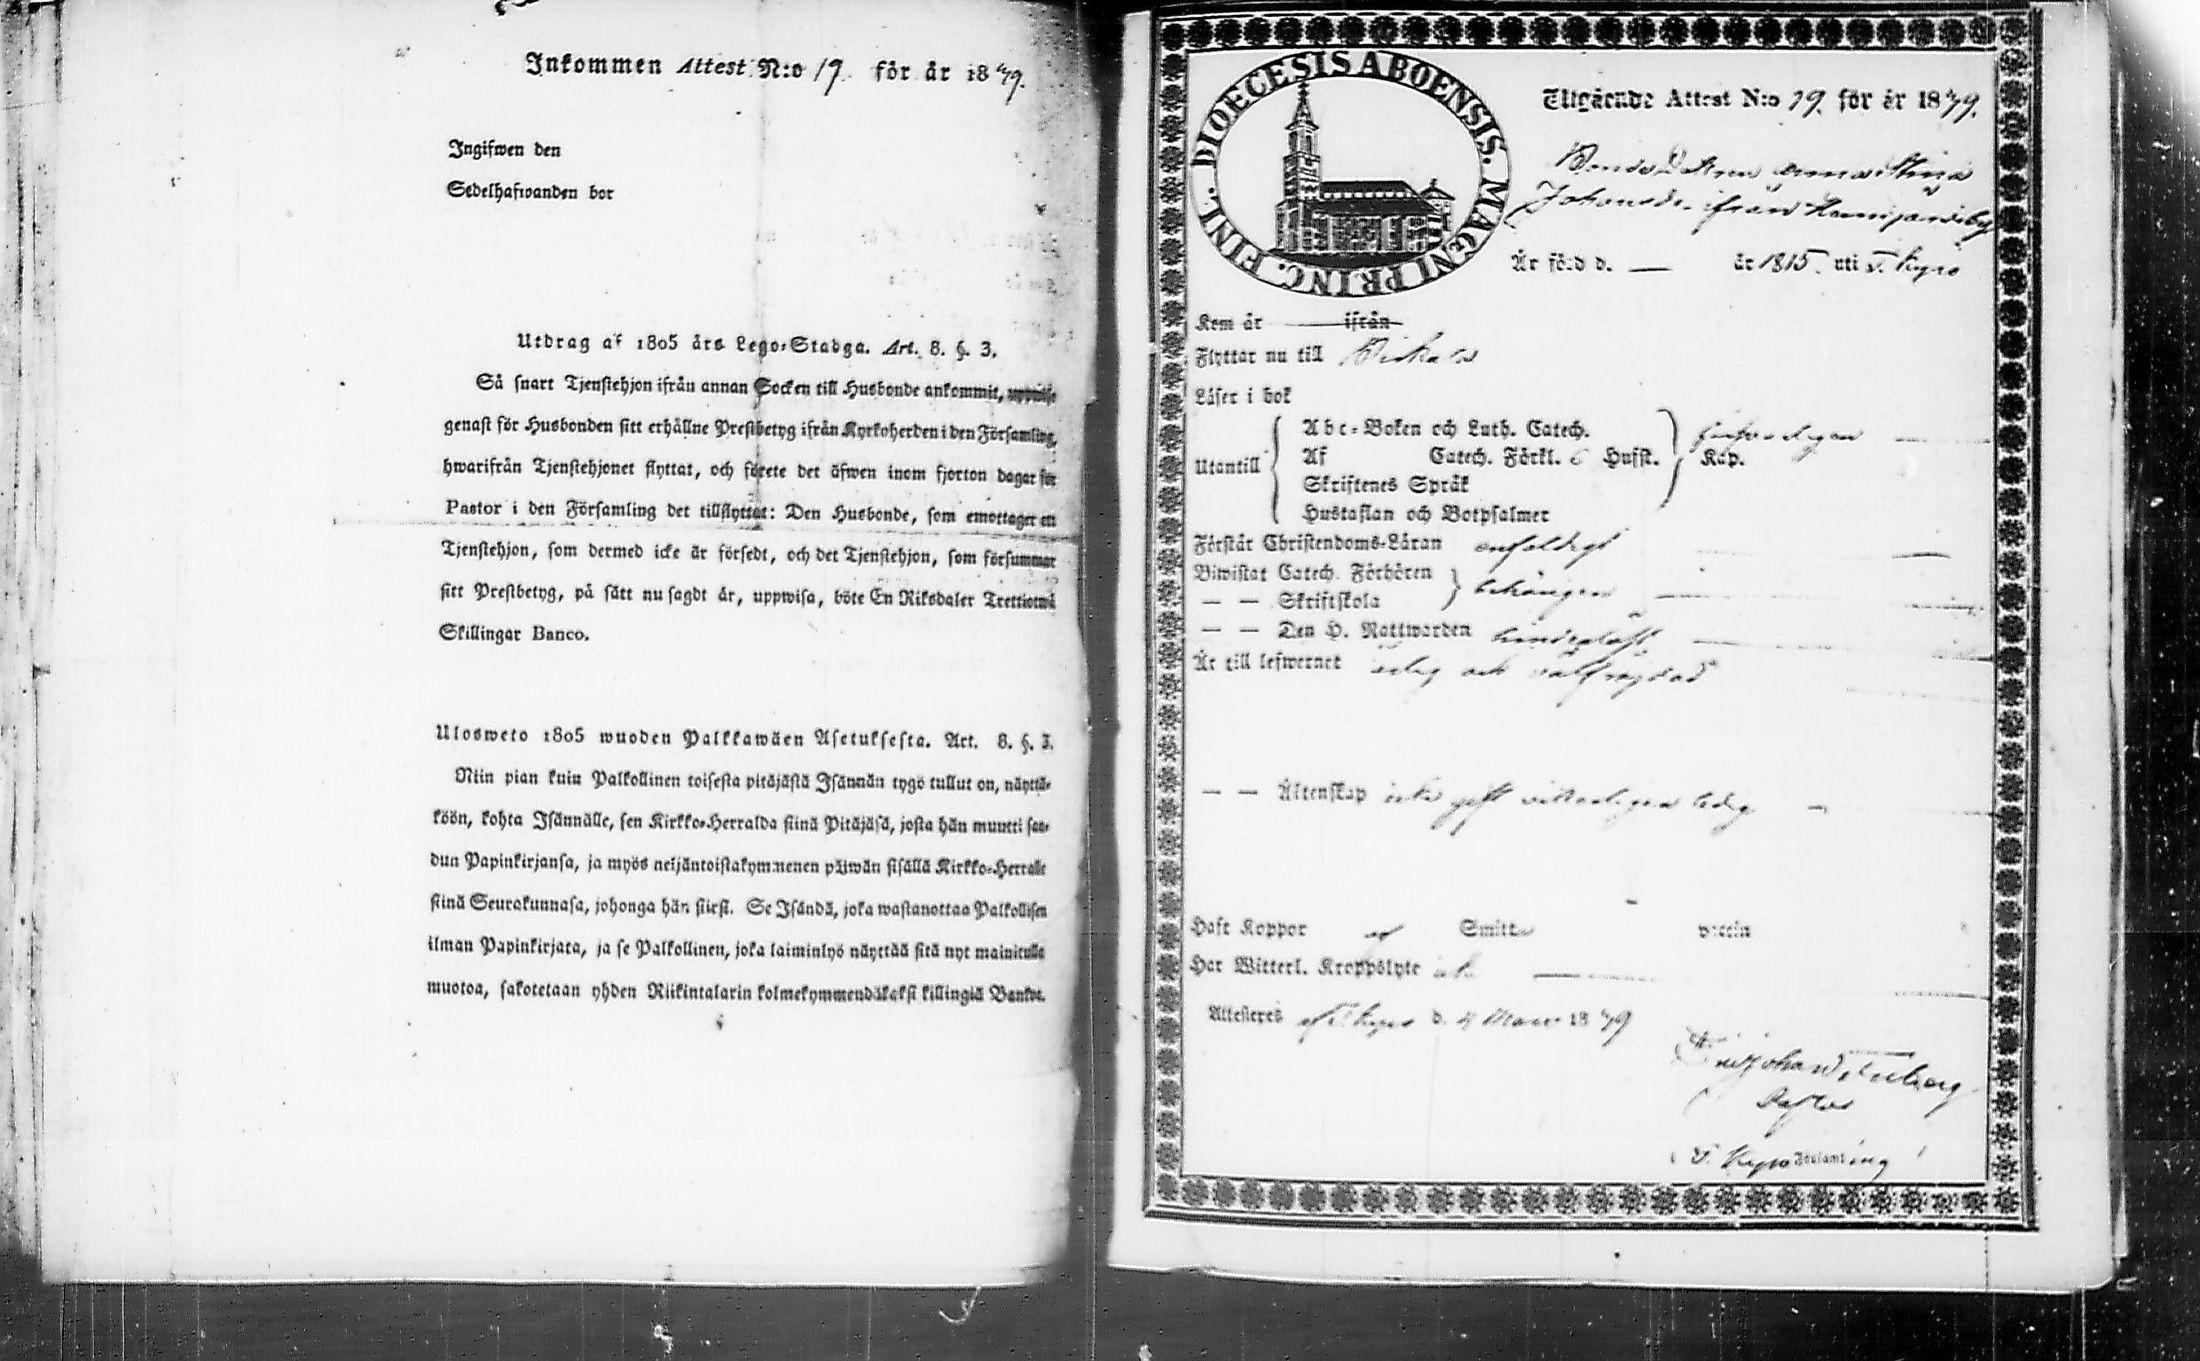 Inkommen Attest N:o 19. för år 1849.
Ingifwen den
Sedelhafwanden bor
Utdrag af 1805 års Lego-Stadga. Art. 8. §. 3.
Så snart Tjenstehjon ifrån annan Socken till Husbonde ankommit, uppwise
genast för Husbonden sitt erhållne Prestbetyg ifrån Kyrkoherden i den Församling,
hwarifrån Tjenstehjonet flyttat, och förete det äfwen inom fjorton dagar för
Pastor i den Församling det tillflyttat: Den Husbonde, som emottager ett
Tjenstehjon, som dermed icke är försedt, och det Tjenstehjon, som försummar
sitt Prestbetyg, på sätt nu sagdt är, uppwisa, böte En Riksdaler Trettiotwå
Skillingar Banco.
Ulosweto 1805 wuoden Palkkawäen Asetuksesta. Art. 8. §. 3.
Niin pian kuin Palkollinen toisesta pitäjästä Isännän tygö tullut on, näyttä-
köön, kohta Isännälle, sen Kirkko-Herralda siinä Pitäjäsä, josta hän muutti saa-
dun Papinkirjansa, ja myös neljäntoistakymmenen päiwän sisällä Kirkko-Herralle
siinä Seurakunnasa, johonga hän siirsi. Se Isändä, joka wastanottaa Palkollisen
ilman Papinkirjata, ja se Palkollinen, joka laiminlyö näyttää sitä nyt mainitulla
muotoa, sakotetaan yhden Riikintalarin kolmekymmendäkaksi killingiä Bankot.
DIOECESIS ABOENSIS. MAGNI PRINC. FINL.
Utgående Attest N:o 19. för år 1849.
Bonde Dottren Anna Stina
Johansdr. ifrån
Är född d. — år 1815. uti T. Kyro
Kom år — ifrån
Flyttar nu till Birkala
Läser i bok
Utantill
Abc-Boken och Luth. Catech.
Af Catech. Förkl. 6 Hufst. Kap.
Skriftenes Språk
Hustaflan och Botpsalmer
Förstår Christendoms-Läran enfaldigt
Biwistat Catech. Förhören
— — Skriftskola behörigen
— — Den H. Nattwarden
Är till lefwernet ärlig och välfrejdad
— — Äktenskap icke gift witterligen ledig
Haft Koppor af Smitta
Har Witterl. Kroppslyte
Attesteras af T. Kyro d. 4 Mars 1849
Pastor
i T. Kyro Församling